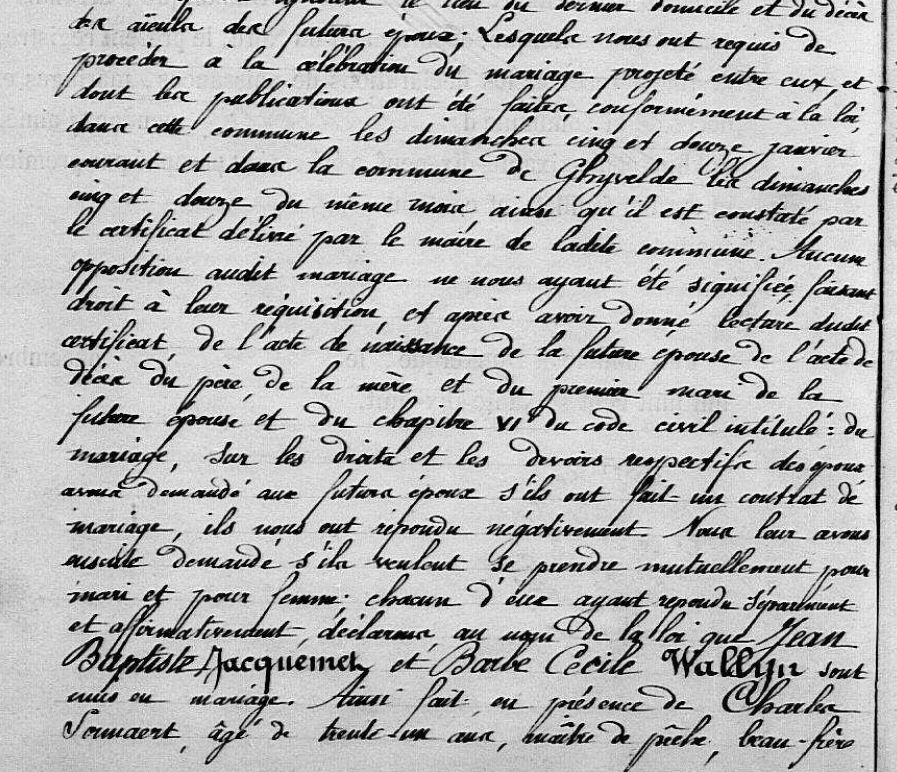 ignorer le lieu du dernier domicile et du décès
des aïeuls des futurs époux. Lesquels nous ont requis de
procéder à la célébration du mariage projeté entre eux, et
dont les publications ont été faites, conformément à la loi,
dans cette commune les dimanches cinq et douze janvier
courant et dans la commune de Ghyvelde les dimanches
cinq et douze du même mois ainsi qu'il est constaté par
le certificat délivré par le maire de ladite commune. Aucune
opposition audit mariage ne nous ayant été signifiée, faisant
droit à leur réquisition, et après avoir donné lecture dudit
certificat de l'acte de naissance de la future épouse de l'acte de
décès du père, de la mère et du premier mari de la
future épouse et du chapitre VI du code civil intitulé : du
mariage, sur les droits et les devoirs respectifs des époux
avons demandé aux futurs époux s'ils ont fait un contrat de
mariage, ils nous ont répondu négativement. Nous leur avons
ensuite demandé s'ils veulent se prendre mutuellement pour
mari et pour femme; chacun d'eux ayant répondu séparément
et affirmativement, déclarons au nom de la loi que Jean
Baptiste Jacquemet et Barbe Cécile Wallyn sont
unis en mariage. Ainsi fait en présence de Charles
âgé de trente-un ans, maître de pêche, beau-frère